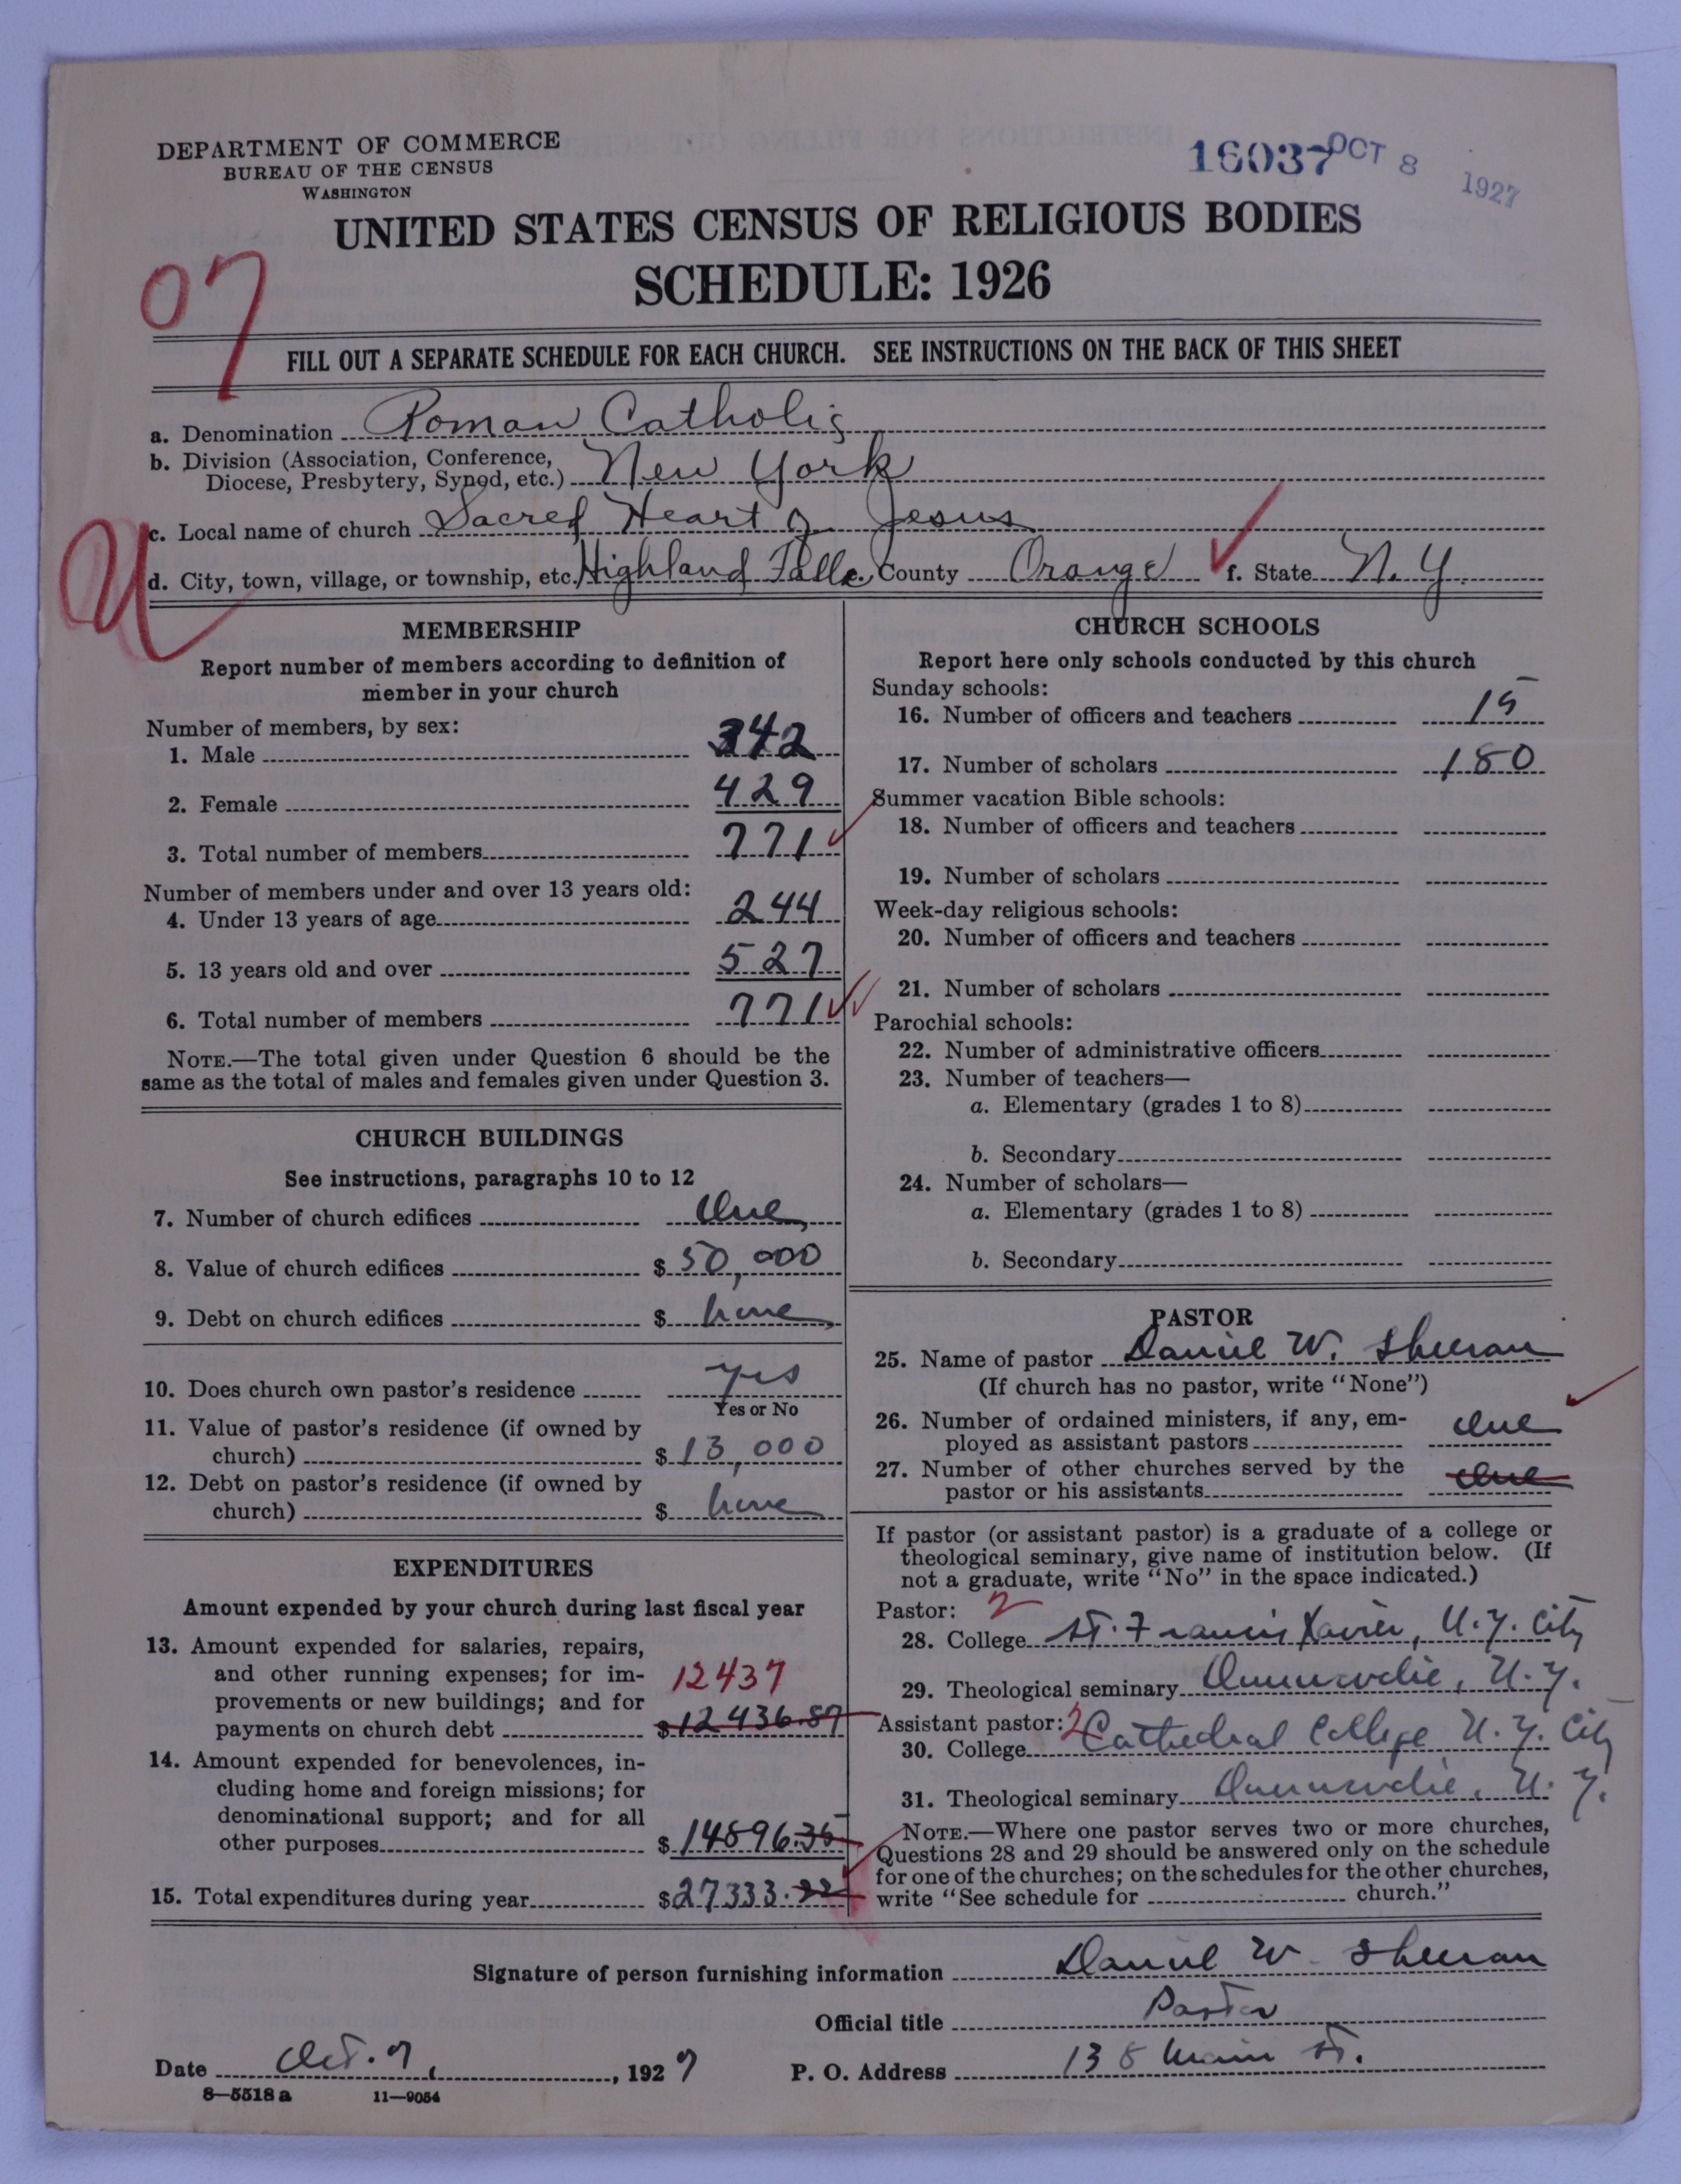 DEPARTMENT OF COMMERCE
BUREAU OF THE CENSUS
WASHINGTON
16037 OCT 8 1927
UNITED STATES CENSUS OF RELIGIOUS BODIES
SCHEDULE: 1926
07
FILL OUT A SEPARATE SCHEDULE FOR EACH CHURCH. SEE INSTRUCTIONS ON THE BACK OF THIS SHEET
a. Denomination Roman Catholic
b. Division (Association, Conference,
Diocese, Presbytery, Synod, etc.) New York
c. Local name of church Sacred Heart of Jesus
d. City, town, village, or township, etc. Highland Falls County Orange f. State N.Y.
MEMBERSHIP
Report number of members according to definition of
member in your church
Number of members, by sex:
1. Male 342
2. Female 429
3. Total number of members 771
Number of members under and over 13 years old:
4. Under 13 years of age 244
5. 13 years old and over 527
6. Total number of members 771
NOTE.—The total given under Question 6 should be the
same as the total of males and females given under Question 3.
CHURCH BUILDINGS
See instructions, paragraphs 10 to 12
7. Number of church edifices One
8. Value of church edifices $ 50,000
9. Debt on church edifices $ none
10. Does church own pastor's residence yes
Yes or No
11. Value of pastor's residence (if owned by
church) $ 13,000
12. Debt on pastor's residence (if owned by
church) $ none
EXPENDITURES
Amount expended by your church during last fiscal year
13. Amount expended for salaries, repairs,
and other running expenses; for im-
provements or new buildings; and for
12437
payments on church debt $ 12436.87
14. Amount expended for benevolences, in-
cluding home and foreign missions; for
denominational support; and for all
other purposes $ 14896.35
15. Total expenditures during year $ 27333.22
CHURCH SCHOOLS
Report here only schools conducted by this church
Sunday schools:
16. Number of officers and teachers 15
17. Number of scholars 180
Summer vacation Bible schools:
18. Number of officers and teachers
19. Number of scholars
Week-day religious schools:
20. Number of officers and teachers
21. Number of scholars
Parochial schools:
22. Number of administrative officers
23. Number of teachers—
a. Elementary (grades 1 to 8)
b. Secondary
24. Number of scholars—
a. Elementary (grades 1 to 8)
b. Secondary
PASTOR
25. Name of pastor Daniel W. Sheeran
(If church has no pastor, write "None")
26. Number of ordained ministers, if any, em-
ployed as assistant pastors one
27. Number of other churches served by the
pastor or his assistants one
If pastor (or assistant pastor) is a graduate of a college or
theological seminary, give name of institution below. (If
not a graduate, write "No" in the space indicated.)
Pastor: 2
28. College St. Francis Xavier, N.Y. City
29. Theological seminary Dunwoodie, N.Y.
Assistant pastor: 2
30. College Cathedral College N.Y. City
31. Theological seminary Dunwoodie, N.Y.
NOTE.—Where one pastor serves two or more churches,
Questions 28 and 29 should be answered only on the schedule
for one of the churches; on the schedules for the other churches,
write "See schedule for church."
Signature of person furnishing information Daniel W. Sheeran
Official title Pastor
Date Oct. 7, 1927 P. O. Address 138 Main St.
8—5518 a 11—9054